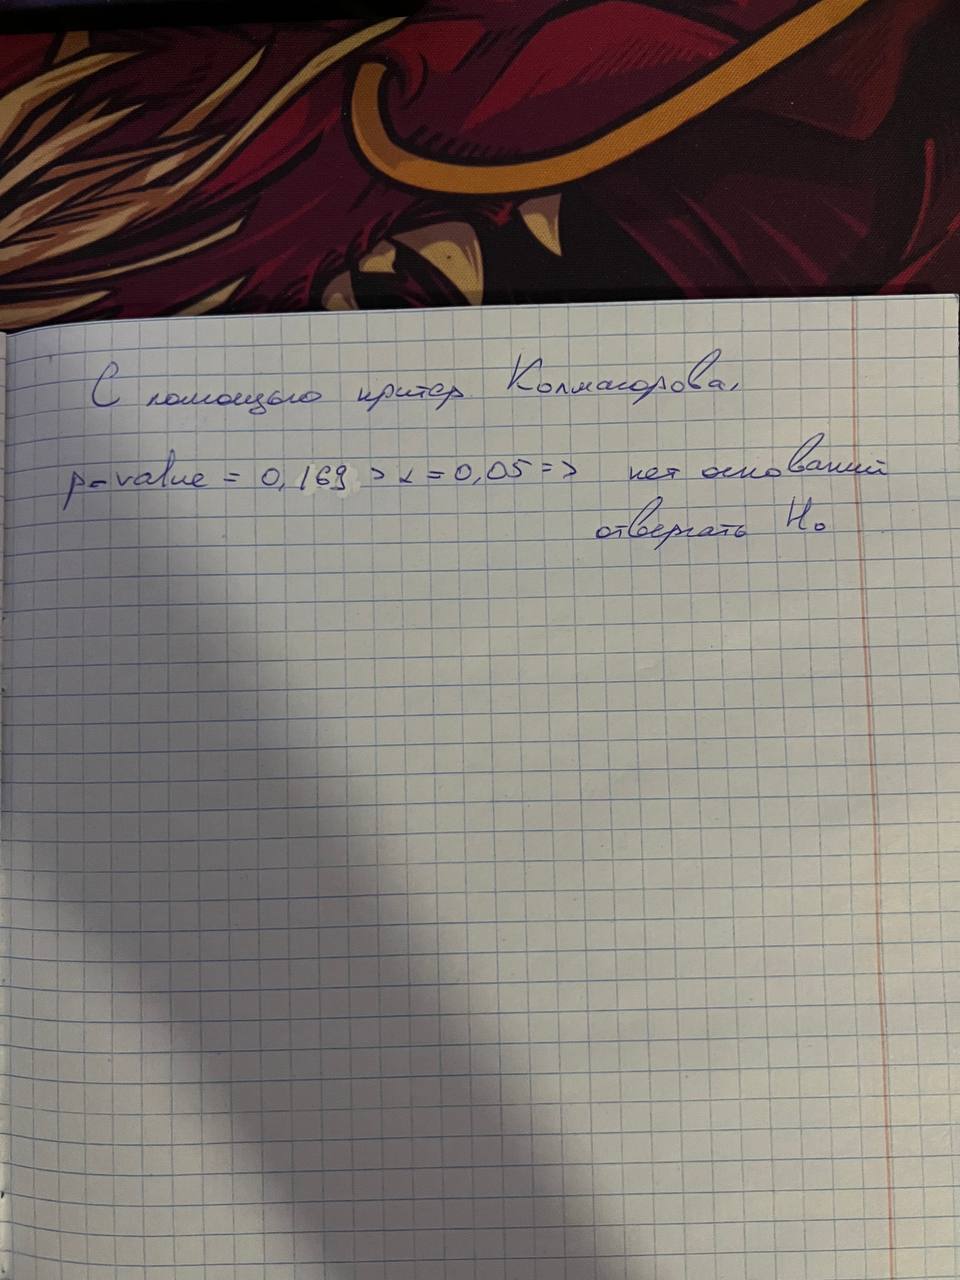 С помощью критер Колмогорова.
p-value = 0,169 > α = 0,05 => нет оснований
отвергать H₀